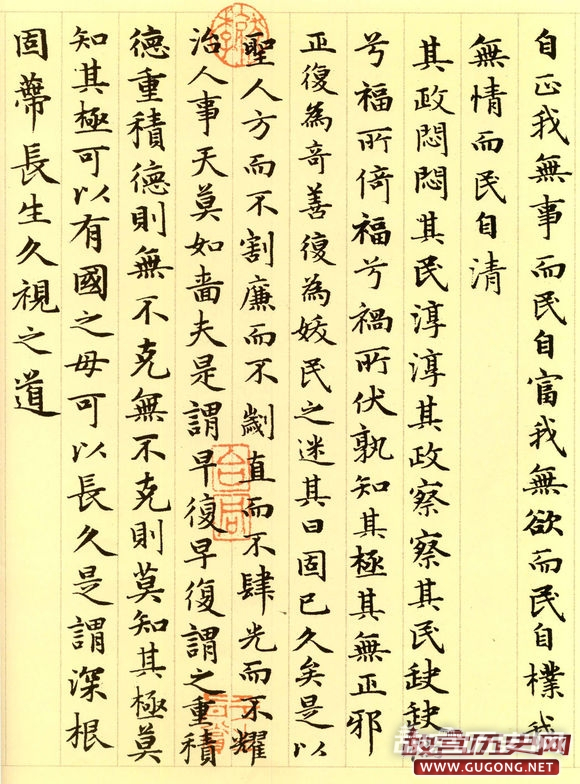 自正我無事而民自富我無欲而民自樸我
無情而民自清
其政悶悶其民淳淳其政察察其民缺缺
兮福所倚福兮禍所伏孰知其極其無正邪
正復為奇善復為妖民之迷其日固已久矣是以
聖人方而不割廉而不劌直而不肆光而不耀
治人事天莫如嗇夫是謂早復早復謂之重積
德重積德則無不克無不克則莫知其極莫
知其極可以有國之母可以長久是謂深根
固蔕長生久視之道
故宫历史网
WWW.GUGONG.NET